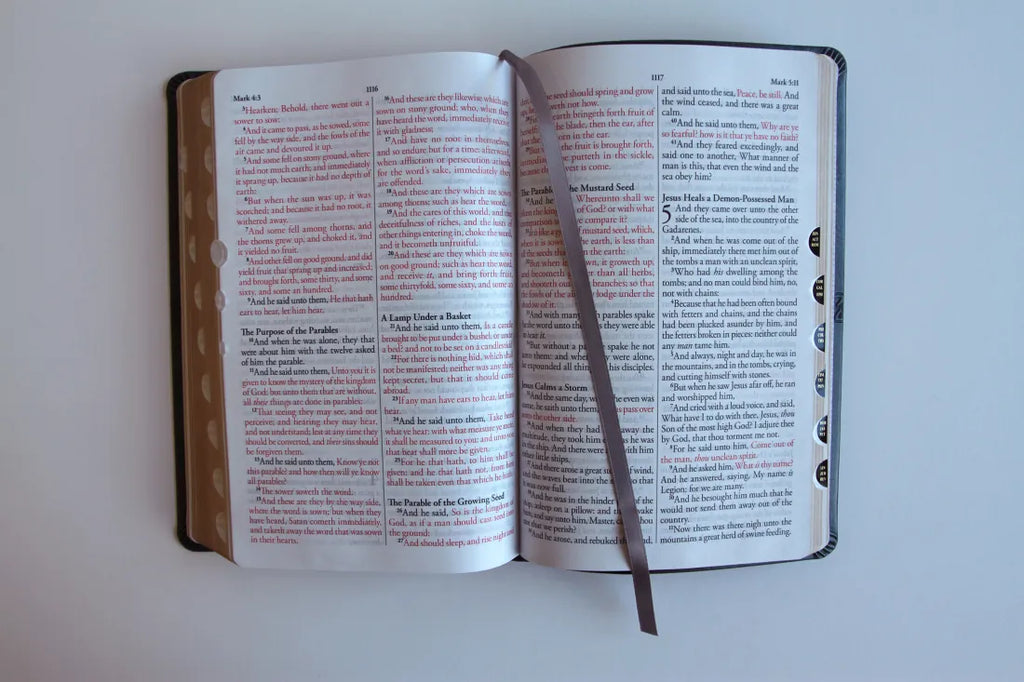 Mark 4:3
1116
3Hearken; Behold, there went out a
sower to sow:
4And it came to pass, as he sowed, some
fell by the way side, and the fowls of the
air came and devoured it up.
5And some fell on stony ground, where
it had not much earth; and immediately
it sprang up, because it had no depth of
earth:
6But when the sun was up, it was
scorched; and because it had no root, it
withered away.
7And some fell among thorns, and
the thorns grew up, and choked it, and
it yielded no fruit.
8And other fell on good ground, and did
yield fruit that sprang up and increased;
and brought forth, some thirty, and some
sixty, and some an hundred.
9And he said unto them, He that hath
ears to hear, let him hear.
The Purpose of the Parables
10And when he was alone, they that
were about him with the twelve asked
of him the parable.
11And he said unto them, Unto you it is
given to know the mystery of the kingdom
of God: but unto them that are without,
all these things are done in parables:
12That seeing they may see, and not
perceive; and hearing they may hear,
and not understand; lest at any time they
should be converted, and their sins should
be forgiven them.
13And he said unto them, Know ye not
this parable? and how then will ye know
all parables?
14The sower soweth the word.
15And these are they by the way side,
where the word is sown; but when they
have heard, Satan cometh immediately,
and taketh away the word that was sown
in their hearts.
16And these are they likewise which are
sown on stony ground; who, when they
have heard the word, immediately receive
it with gladness;
17And have no root in themselves,
and so endure but for a time: afterward,
when affliction or persecution ariseth
for the word's sake, immediately they
are offended.
18And these are they which are sown
among thorns; such as hear the word,
19And the cares of this world, and the
deceitfulness of riches, and the lusts of
other things entering in, choke the word,
and it becometh unfruitful.
20And these are they which are sown
on good ground; such as hear the word,
and receive it, and bring forth fruit,
some thirtyfold, some sixty, and some an
hundred.
A Lamp Under a Basket
21And he said unto them, Is a candle
brought to be put under a bushel, or under
a bed? and not to be set on a candlestick?
22For there is nothing hid, which shall
not be manifested; neither was any thing
kept secret, but that it should come
abroad.
23If any man have ears to hear, let him
hear.
24And he said unto them, Take heed
what ye hear: with what measure ye mete,
it shall be measured to you: and unto you
that hear shall more be given.
25For he that hath, to him shall be
given: and he that hath not, from him
shall be taken even that which he hath.
The Parable of the Growing Seed
26And he said, So is the kingdom of
God, as if a man should cast seed into
the ground;
27And should sleep, and rise night and
1117
Mark 5:11
seed should spring and grow
not how.
earth bringeth forth fruit of
the blade, then the ear, after
corn in the ear.
the fruit is brought forth,
he putteth in the sickle,
is come.
The Parable the Mustard Seed
Whereunto shall we
of God? or with what
compare it?
like a mustard seed, which,
when it is the earth, is less than
the seeds the earth:
But when it groweth up,
and becometh than all herbs,
and shooteth branches; so that
the fowls of lodge under the
shadow of it.
And with many parables spake
he the word unto they were able
to hear it.
But without a parable spake he not
unto them: and when were alone,
he expounded all things his disciples.
Jesus Calms a Storm
And the same day, the even was
come, he saith unto them, us pass over
unto the other side.
And when they had away the
multitude, they took him as he was
in the ship. And there were with him
other little ships.
And there arose a great of wind,
and the waves beat into the so that
it was now full.
And he was in the hinder of the
ship, asleep on a pillow: and
and say unto him, Master, thou
not that we perish?
And he arose, and rebuked
and said unto the sea, Peace, be still. And
the wind ceased, and there was a great
calm.
40And he said unto them, Why are ye
so fearful? how is it that ye have no faith?
41And they feared exceedingly, and
said one to another, What manner of
man is this, that even the wind and the
sea obey him?
Jesus Heals a Demon-Possessed Man
5 And they came over unto the other
side of the sea, into the country of the
Gadarenes.
2And when he was come out of the
ship, immediately there met him out of
the tombs a man with an unclean spirit,
3Who had his dwelling among the
tombs; and no man could bind him, no,
not with chains:
4Because that he had been often bound
with fetters and chains, and the chains
had been plucked asunder by him, and
the fetters broken in pieces: neither could
any man tame him.
5And always, night and day, he was in
the mountains, and in the tombs, crying,
and cutting himself with stones.
6But when he saw Jesus afar off, he ran
and worshipped him,
7And cried with a loud voice, and said,
What have I to do with thee, Jesus, thou
Son of the most high God? I adjure thee
by God, that thou torment me not.
8For he said unto him, Come out of
the man, thou unclean spirit.
9And he asked him, What is thy name?
And he answered, saying, My name is
Legion: for we are many.
10And he besought him much that he
would not send them away out of the
country.
11Now there was there nigh unto the
mountains a great herd of swine feeding.